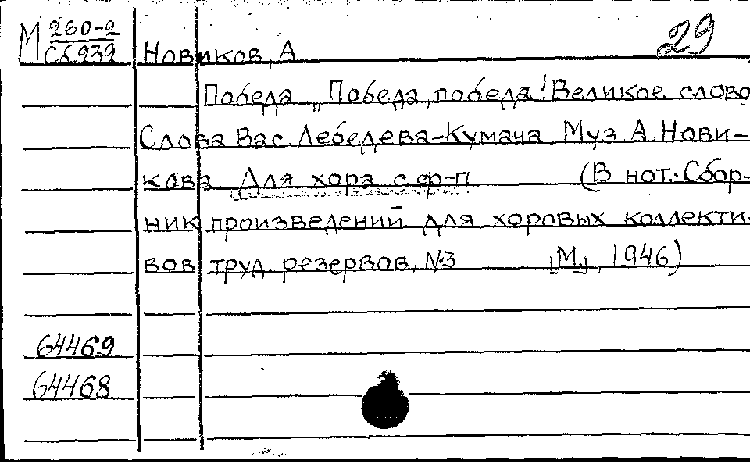 М 260-2
Сб939 Новиков, А 29
Победа „Победа, победа! Великое слово
Слова Вас. Лебедева-Кумача Муз А. Нови-
кова Для хора с ф-п (В нот. Сбор-
ник произведений для хоровых коллекти-
вов труд. резервов, №3 М, 1946)
64469
64468